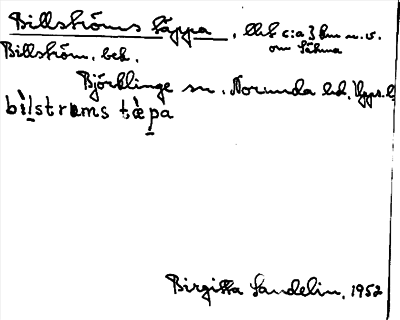 Billströms täppa, lht c:a 3 km n.v.
om Lähma
Billström. bek.
Björklinge sn. Norunda hd. Upps. l.
bìlstrøms tæ̀pa
Birgitta Sandelin, 1952